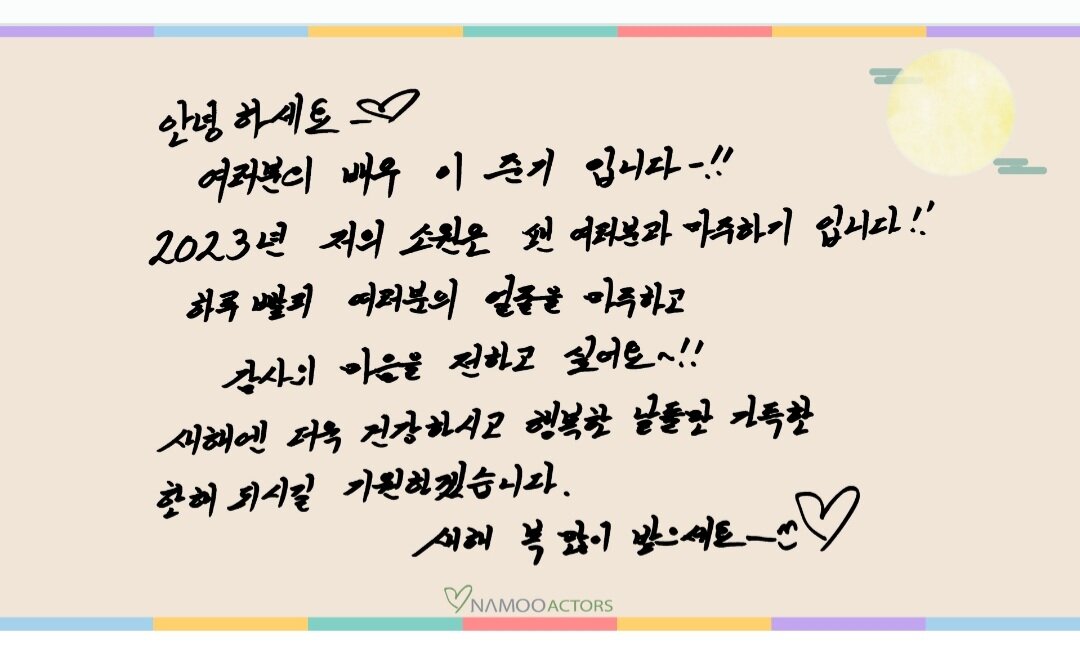 안녕하세요 -♡
여러분의 배우 이준기 입니다-!!
2023년 저의 소원은 팬 여러분과 마주하기 입니다!!
하루 빨리 여러분의 얼굴을 마주하고
감사의 마음을 전하고 싶어요~!!
새해엔 더욱 건강하시고 행복한 날들만 가득한
한해 되시길 기원하겠습니다.
새해 복 많이 받으세요-^^♡
NAMOO ACTORS